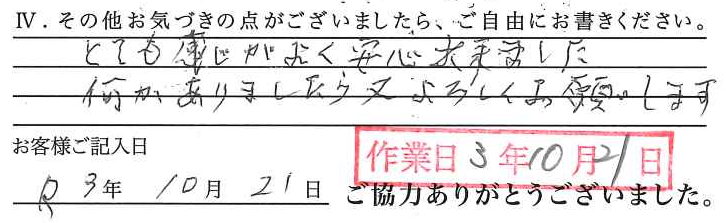 Ⅳ．その他お気づきの点がございましたら、ご自由にお書きください。
とても感じがよく安心出来ました
何かありましたら又よろしくお願いします
お客様ご記入日
作業日 3年10月21日
R 3年 10月 21日
ご協力ありがとうございました。